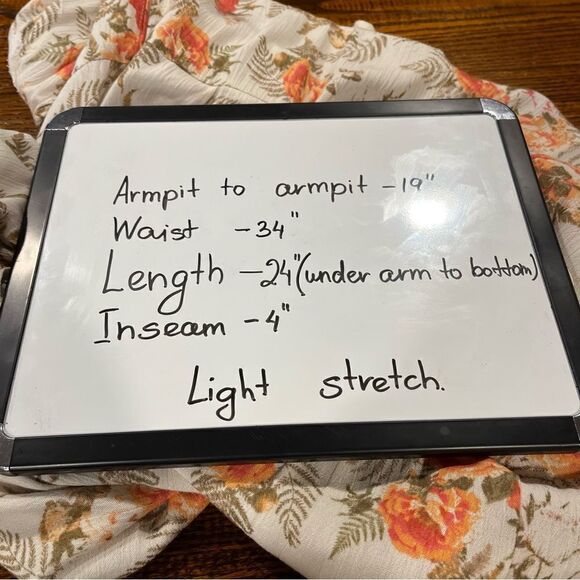 Armpit to armpit - 19"
Waist - 34"
Length - 24" (under arm to bottom)
Inseam - 4"
Light stretch.